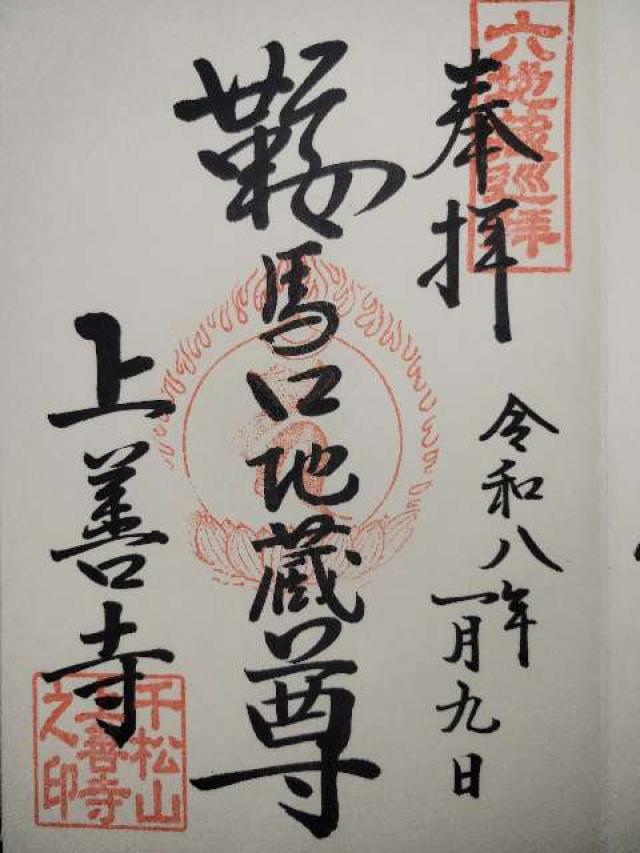 六地蔵巡拝
奉拝
令和八年
一月九日
鞍馬口地蔵尊
上善寺
千松山
上善寺
之印